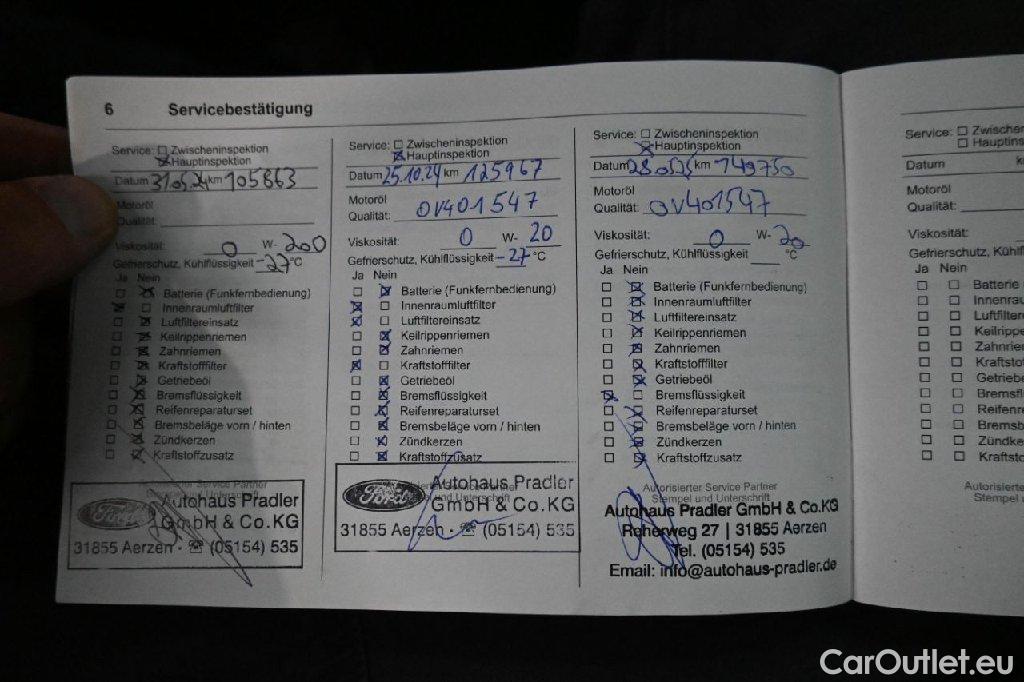 6 Servicebestätigung
Service: Zwischeninspektion
Hauptinspektion
Datum 31.05.24 km 105863
Motoröl
Qualität:
Viskosität: 0 W- 20
Gefrierschutz, Kühlflüssigkeit -27 °C
Ja Nein
Batterie (Funkfernbedienung)
Innenraumluftfilter
Luftfiltereinsatz
Keilrippenriemen
Zahnriemen
Kraftstofffilter
Getriebeöl
Bremsflüssigkeit
Reifenreparaturset
Bremsbeläge vorn / hinten
Zündkerzen
Kraftstoffzusatz
Autorisierter Service Partner
Ford
Autohaus Pradler
GmbH & Co.KG
31855 Aerzen - ☎ (05154) 535
Service: Zwischeninspektion
Hauptinspektion
Datum 25.10.24 km 125967
Motoröl
Qualität: OV401547
Viskosität: 0 W- 20
Gefrierschutz, Kühlflüssigkeit -27 °C
Ja Nein
Batterie (Funkfernbedienung)
Innenraumluftfilter
Luftfiltereinsatz
Keilrippenriemen
Zahnriemen
Kraftstofffilter
Getriebeöl
Bremsflüssigkeit
Reifenreparaturset
Bremsbeläge vorn / hinten
Zündkerzen
Kraftstoffzusatz
Ford
Autohaus Pradler
GmbH & Co.KG
31855 Aerzen - ☎ (05154) 535
Service: Zwischeninspektion
Hauptinspektion
Datum 28.05.25 km 149750
Motoröl
Qualität: OV401547
Viskosität: 0 W- 20
Gefrierschutz, Kühlflüssigkeit °C
Ja Nein
Batterie (Funkfernbedienung)
Innenraumluftfilter
Luftfiltereinsatz
Keilrippenriemen
Zahnriemen
Kraftstofffilter
Getriebeöl
Bremsflüssigkeit
Reifenreparaturset
Bremsbeläge vorn / hinten
Zündkerzen
Kraftstoffzusatz
Autorisierter Service Partner
Stempel und Unterschrift
Autohaus Pradler GmbH & Co.KG
Reherweg 27 | 31855 Aerzen
Tel. (05154) 535
Email: info@autohaus-pradler.de
Service: Zwischen
Hauptinsp
Datum
Motoröl
Qualität:
Viskosität:
Gefrierschutz, Kühlflüss
Ja Nein
Batterie
Innenrau
Luftfilter
Keilrippe
Zahnriem
Kraftstof
Getriebe
Bremsflü
Reifenre
Bremsb
Zündke
Kraftsto
Autorisierte
Stempel
CarOutlet.eu